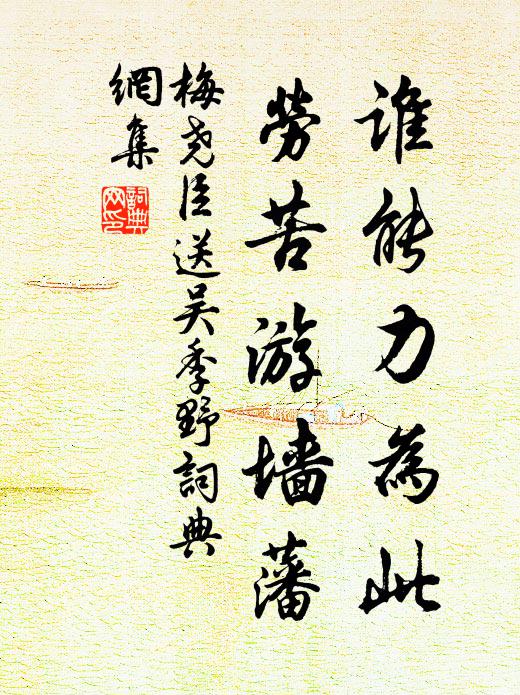 谁能力為此
勞苦游墙藩
梅尧臣送吴季野詞典
網集
詞典
网印